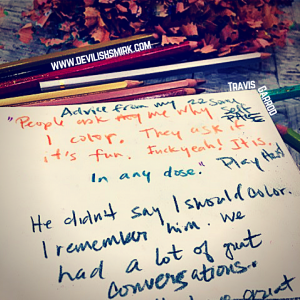 WWW.DEVILISHSMIRK.COM
TRAVIS GARROD
Advice from my
self
"People ask me why
I color. They ask if
it's fun. Fuckyeah! It is.
In any dose."
He didn't say I should color.
I remember him. We
had a lot of great
conversations.